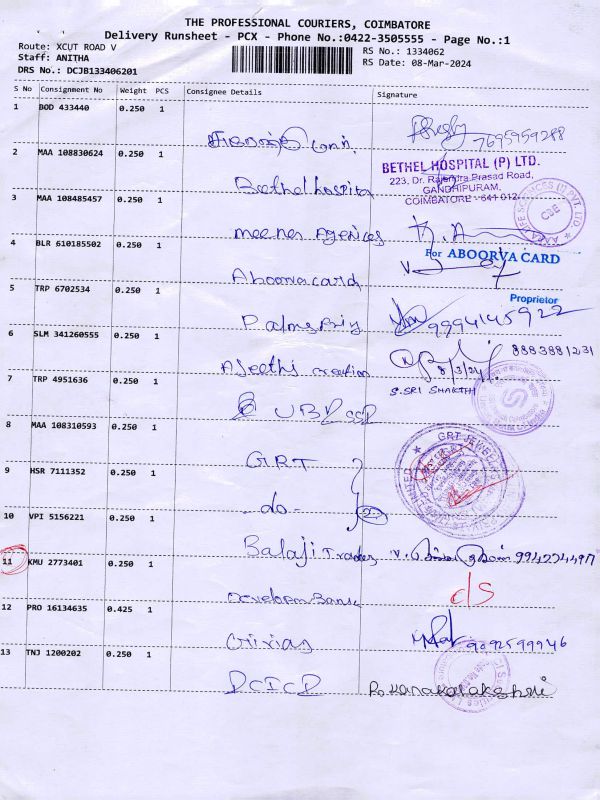 THE PROFESSIONAL COURIERS, COIMBATORE
Delivery Runsheet - PCX - Phone No.:0422-3505555 - Page No.:1
Route: XCUT ROAD V
RS No.: 1334062
Staff: ANITHA
RS Date: 08-Mar-2024
DRS No.: DCJB133406201
S No Consignment No Weight PCS Consignee Details Signature
1 BOD 433440 0.250 1
7695959288
2 MAA 108830624 0.250 1
Bethel hospital
BETHEL HOSPITAL (P) LTD.
223, Dr. Rajendra Prasad Road,
GANDHIPURAM,
COIMBATORE - 641 012.
3 MAA 108485457 0.250 1
meener Agencies
CBE
4 BLR 610185502 0.250 1
Aboorva card
For ABOORVA CARD
Proprietor
5 TRP 6702534 0.250 1
9994145922
6 SLM 341260555 0.250 1
creation
8/3/24
8883881231
S.SRI SHAKTHI
7 TRP 4951636 0.250 1
8 MAA 108310593 0.250 1
GRT
GRT JEWEL
9 HSR 7111352 0.250 1
-do-
2
10 VPI 5156221 0.250 1
Balaji Trades
11 KMU 2773401 0.250 1
Developm Bank
c/s
12 PRO 16134635 0.425 1
9092599946
13 TNJ 1200202 0.250 1
DCICD